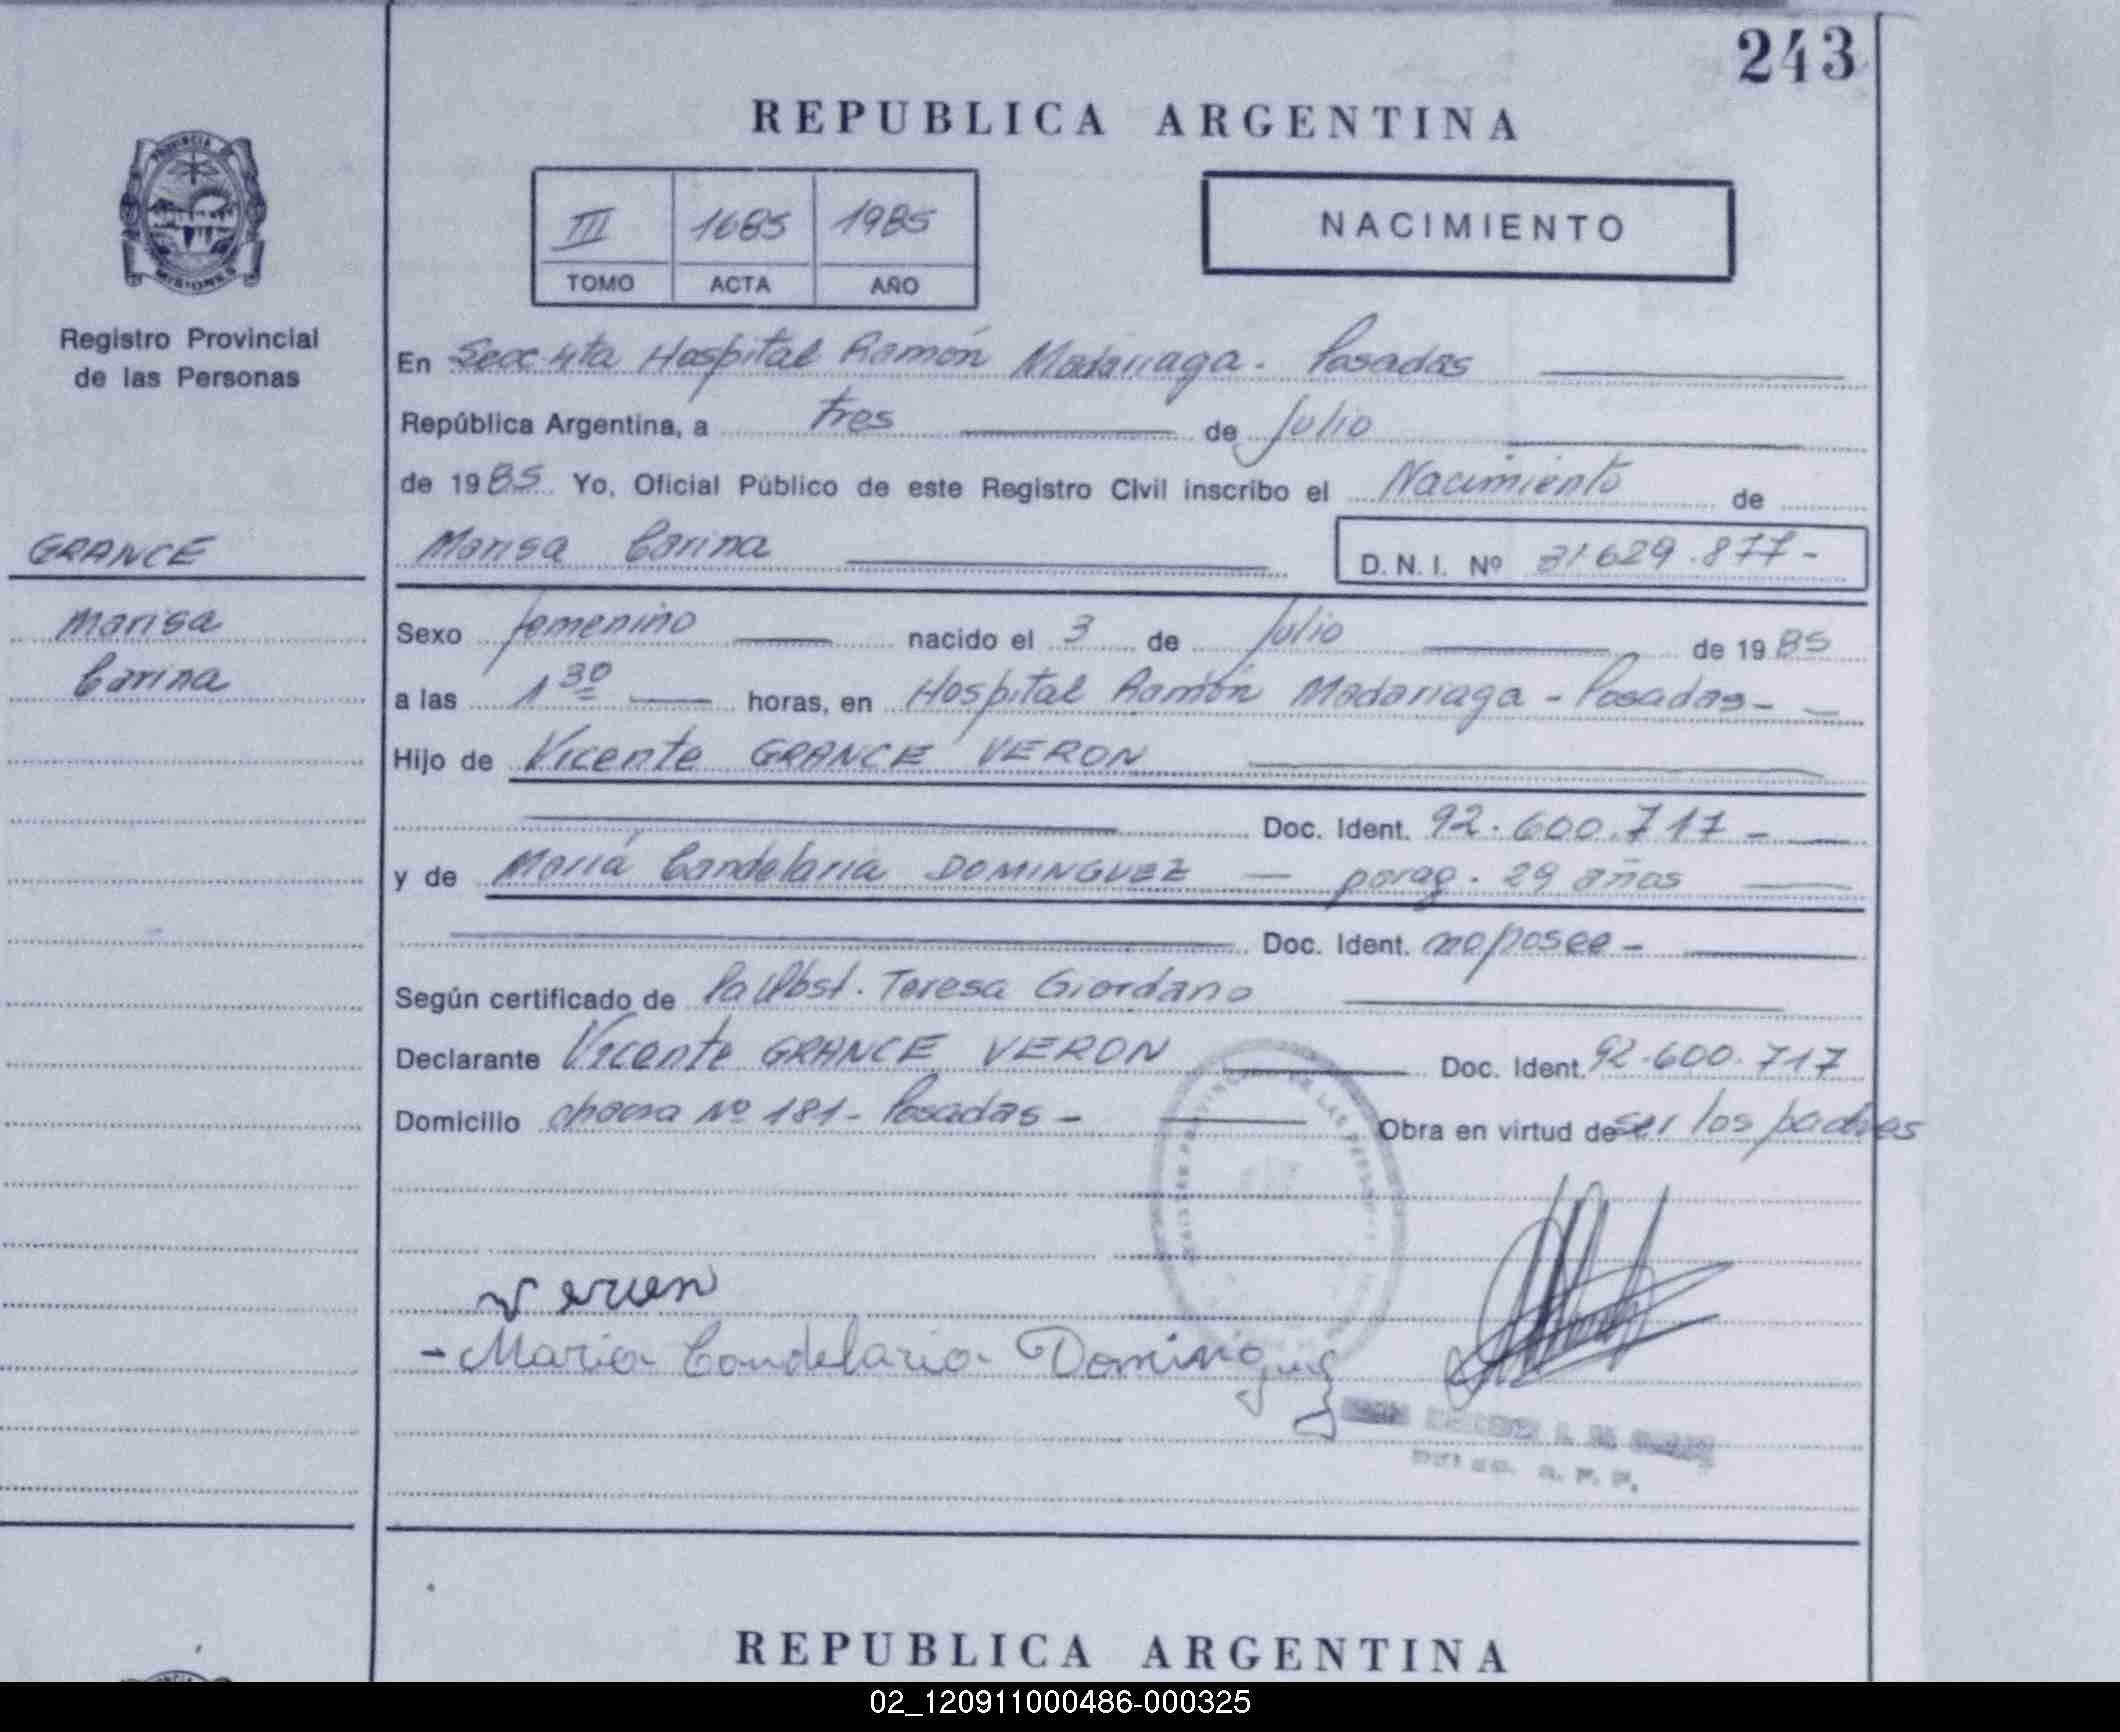 243
REPUBLICA ARGENTINA
PROVINCIA
MISIONES
III 1685 1985
TOMO ACTA AÑO
NACIMIENTO
Registro Provincial
de las Personas
GRANCE
Marisa
Carina
En Secc 4ta Hospital Ramón Madariaga - Posadas
República Argentina, a tres de Julio
de 1985 Yo, Oficial Público de este Registro Civil inscribo el Nacimiento de
Marisa Carina D. N. I. Nº 31.629.877-
Sexo femenino nacido el 3 de Julio de 1985
a las 1 30 horas, en Hospital Ramón Madariaga - Posadas -
Hijo de Vicente GRANCE VERON
Doc. Ident. 92.600.717 -
y de María Candelaria DOMINGUEZ - parag. 29 años
Doc. Ident. no posee -
Según certificado de Teresa Giordano
Declarante Vicente GRANCE VERON Doc. Ident. 92.600.717
Domicilio chacra Nº 181 - Posadas - Obra en virtud de ser los padres
Veron
- Maria Candelaria Dominguez
REPUBLICA ARGENTINA
02_120911000486-000325